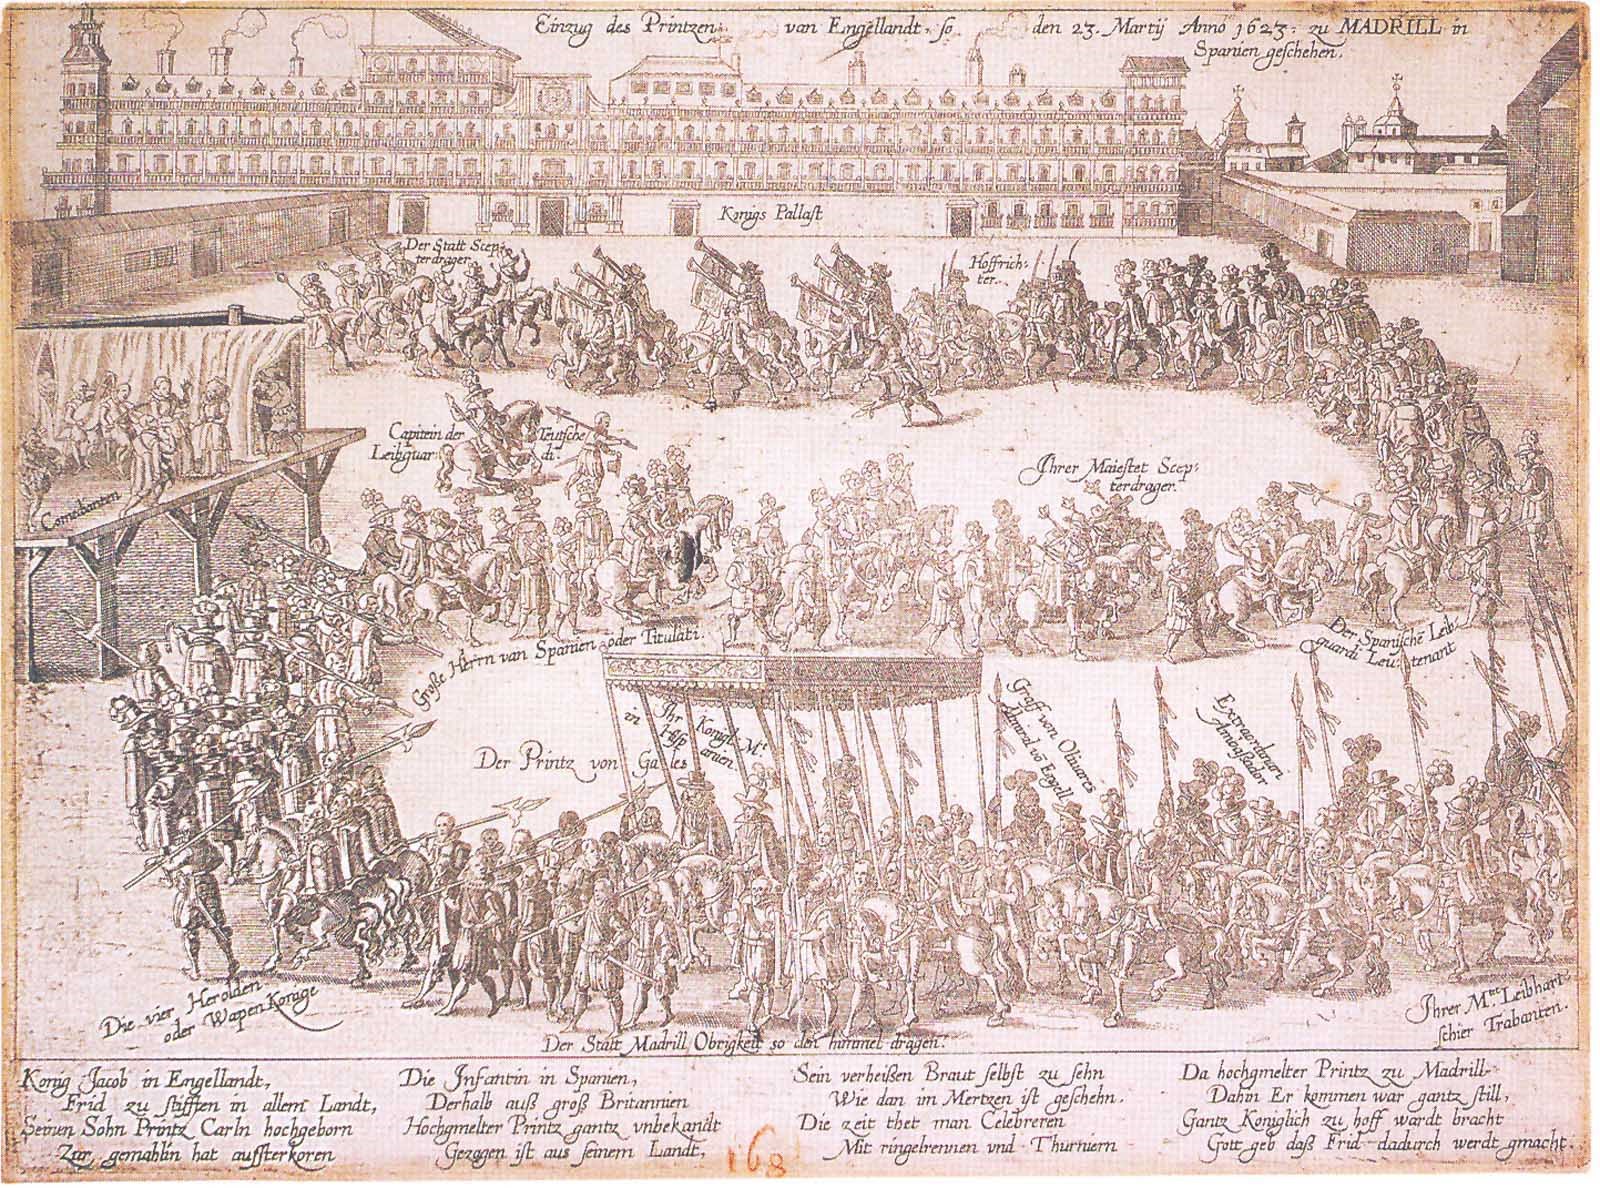 Einzug des Printzen van Engellandt, so den 23. Martij Anno 1623. zu MADRILL in
Spanien geschehen.
Konigs Pallast
Der Statt Scep-
terdrager
Hoffrich-
ter.
Capitein der
Leibguar
Teutsche
di
Ihrer Maiestet Scep-
terdrager.
Comedianten
Große Herrn van Spanien oder Titulati.
Der Spanische Leib
guardi Leutenant
Der Printz von Galles
Ihr Konigl. Mt.
in Hispanien
Graff von Olivares
Extraordenari
Ambassador
Die vier Herolden
oder Wapen Konige
Der Statt Madrill Obrigkeit so den himmel dragen.
Ihrer Mtet Leibhart
schier Trabanten.
Konig Jacob in Engellandt,
Frid zu stifften in allem Landt,
Seinen Sohn Printz Carln hochgeborn
Zur gemahlin hat aufsterkoren
Die Infantin in Spanien,
Derhalb auß groß Britannien
Hochgmelter Printz gantz vnbekandt
Gezogen ist aus seinem Landt,
Sein verheißen Braut selbst zu sehn
Wie dan im Mertzen ist geschehn.
Die zeit thet man Celebreren
Mit ringelrennen vnd Thurniern
Da hochgmelter Printz zu Madrill
Dahin Er kommen war gantz still,
Gantz Koniglich zu hoff wardt bracht
Gott geb daß Frid dadurch werdt gmacht.
168